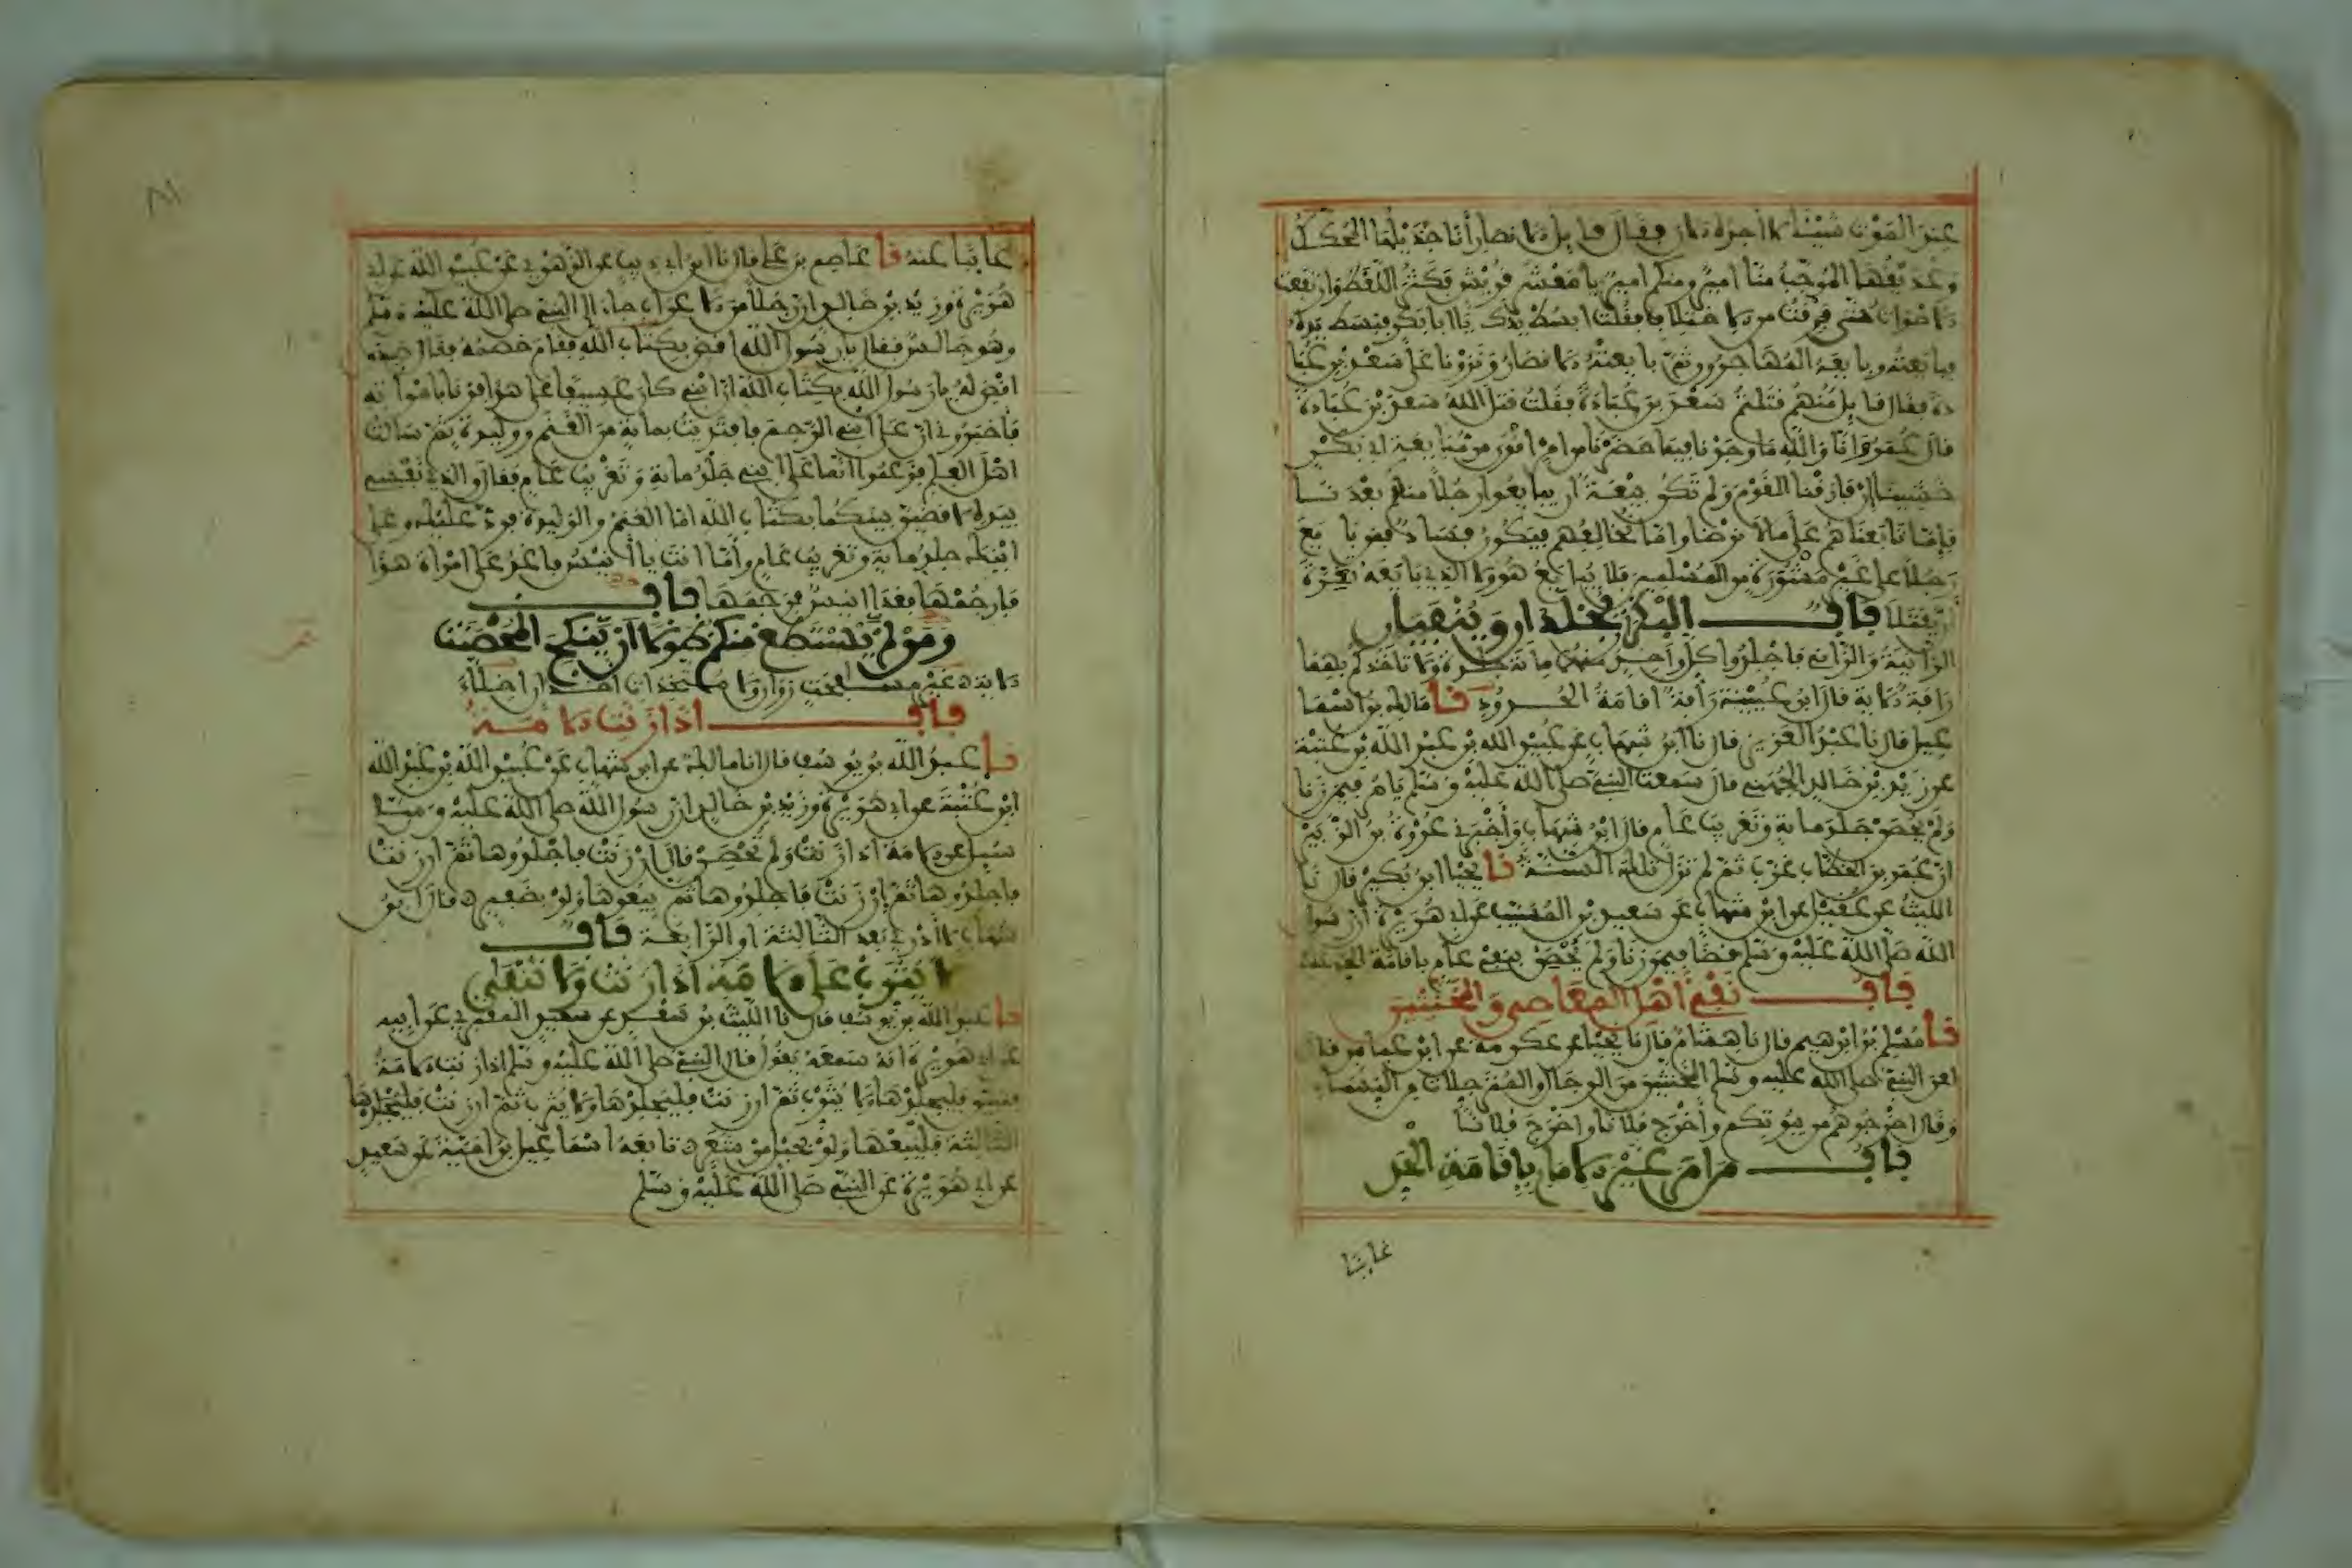 عند الموت شيئا لا اجده الان فقال قايل الانصار أنا جذيلها المحكك
وعذيقها المرجب منا امير ومنكم امير يا معشر قريش فكثر اللغط وارتفعت
الاصوات حتى فرقت من الاختلاف فقلت ابسط يدك يا ابا بكر فبسط يده
فبايعته وبايعه المهاجرون ثم بايعته الانصار ونزونا على سعد بن عبا
دة فقال قايل منهم قتلتم سعد بن عبادة فقلت قتل الله سعد بن عبادة
قال عمر وانا والله ما وجدنا فيما حضرنا من امر اقوى من مبايعة ابي بكر
خشينا ان فارقنا القوم ولم تكن بيعة ان يبايعوا رجلا منهم بعدنا
فإما تابعناهم على ما لا نرضا واما نخالفهم فيكون فساد فمن بايع
رجلا على غير مشورة من المسلمين فلا يبايع هو ولا الذي بايعه تغرة
ان يقتلا باب البكران يجلدان وينفيان
الزانية والزاني فاجلدوا كل واحد منهما ماية جلدة ولا تاخذكم بهما
رافة الاية قال ابن عيينة رأفة اقامة الحدود نا مالك بن اسما
عيل قال نا عبد العزيز قال نا ابن شهاب عن عبيد الله بن عبد الله بن عتبة
عن زيد بن خالد الجهني قال سمعت النبي صلى الله عليه وسلم يامر فيمن زنا
ولم يحصن جلد ماية وتغريب عام قال ابن شهاب وأخبرني عروة بن الزبير
ان عمر بن الخطاب غرب ثم لم تزل تلك السنة نا يحيا ابن بكير قال نا
الليث عن عقيل عن ابن شهاب عن سعيد بن المسيب عن ابي هريرة ان رسول
الله صلى الله عليه وسلم قضا فيمن زنا ولم يحصن بنفي عام باقامة الحد عليه
باب نفي أهل المعاصي والمخنثين
نا مسلم بن ابرهيم قال نا هشام قال نا يحيا عن عكرمة عن ابن عباس قال
لعن النبي صلى الله عليه وسلم المخنثين من الرجال والمترجلات من النساء
وقال اخرجوهم من بيوتكم وأخرج فلانا واخرج فلانا
باب من امر غير الامام بإقامة الحد
غايبا
غايبا عنه نا عاصم بن علي قال نا ابن ابي ذيب عن الزهري عن عبيد الله عن ابي
هريرة وزيد بن خالد ان رجلا من الاعراب جاء الى النبي صلى الله عليه وسلم
وهو جالس فقال يا رسول الله اقض بكتاب الله فقام خصمه فقال صدق
اقض له يا رسول الله بكتاب الله ان ابني كان عسيفا على هذا فزنا بامراته
فاخبروني ان على ابني الرجم فافتديت بماية من الغنم ووليدة ثم سالت
اهل العلم فزعموا انما على ابني جلد ماية وتغريب عام فقال والذي نفسي
بيده لاقضين بينكما بكتاب الله اما الغنم والوليدة فرد عليك وعلى
ابنك جلد ماية وتغريب عام وأما انت يا أنيس فاغد على امراة هذا
فارجمها فغدا انيس فرجمها باب
ومن لم يستطع منكم طولا أن ينكح المحصنات
الاية غير مسافحات زواني ولا متخذات اخدان اخلاء
باب اذا زنت الامة
نا عبد الله بن يوسف قال انا مالك عن ابن شهاب عن عبيد الله بن عبد الله
ابن عتبة عن ابي هريرة وزيد بن خالد ان رسول الله صلى الله عليه وسلم
سيل عن الامة اذا زنت ولم تحصن قال إن زنت فاجلدوها ثم ان زنت
فاجلدوها ثم إن زنت فاجلدوها ثم بيعوها ولو بضفير قال ابن
شهاب لا أدري بعد الثالثة او الرابعة باب
لا يثرب على الامة اذا زنت ولا تنفى
نا عبد الله بن يوسف قال نا الليث عن سعيد المقبري عن ابيه
عن ابي هريرة انه سمعه يقول قال النبي صلى الله عليه وسلم اذا زنت الامة
فتبين فليجلدها ولا يثرب ثم ان زنت فليجلدها ولا يثرب ثم ان زنت فليجلدها
الثالثة فليبعها ولو بحبل من شعر تابعه اسماعيل بن امية عن سعيد
عن ابي هريرة عن النبي صلى الله عليه وسلم